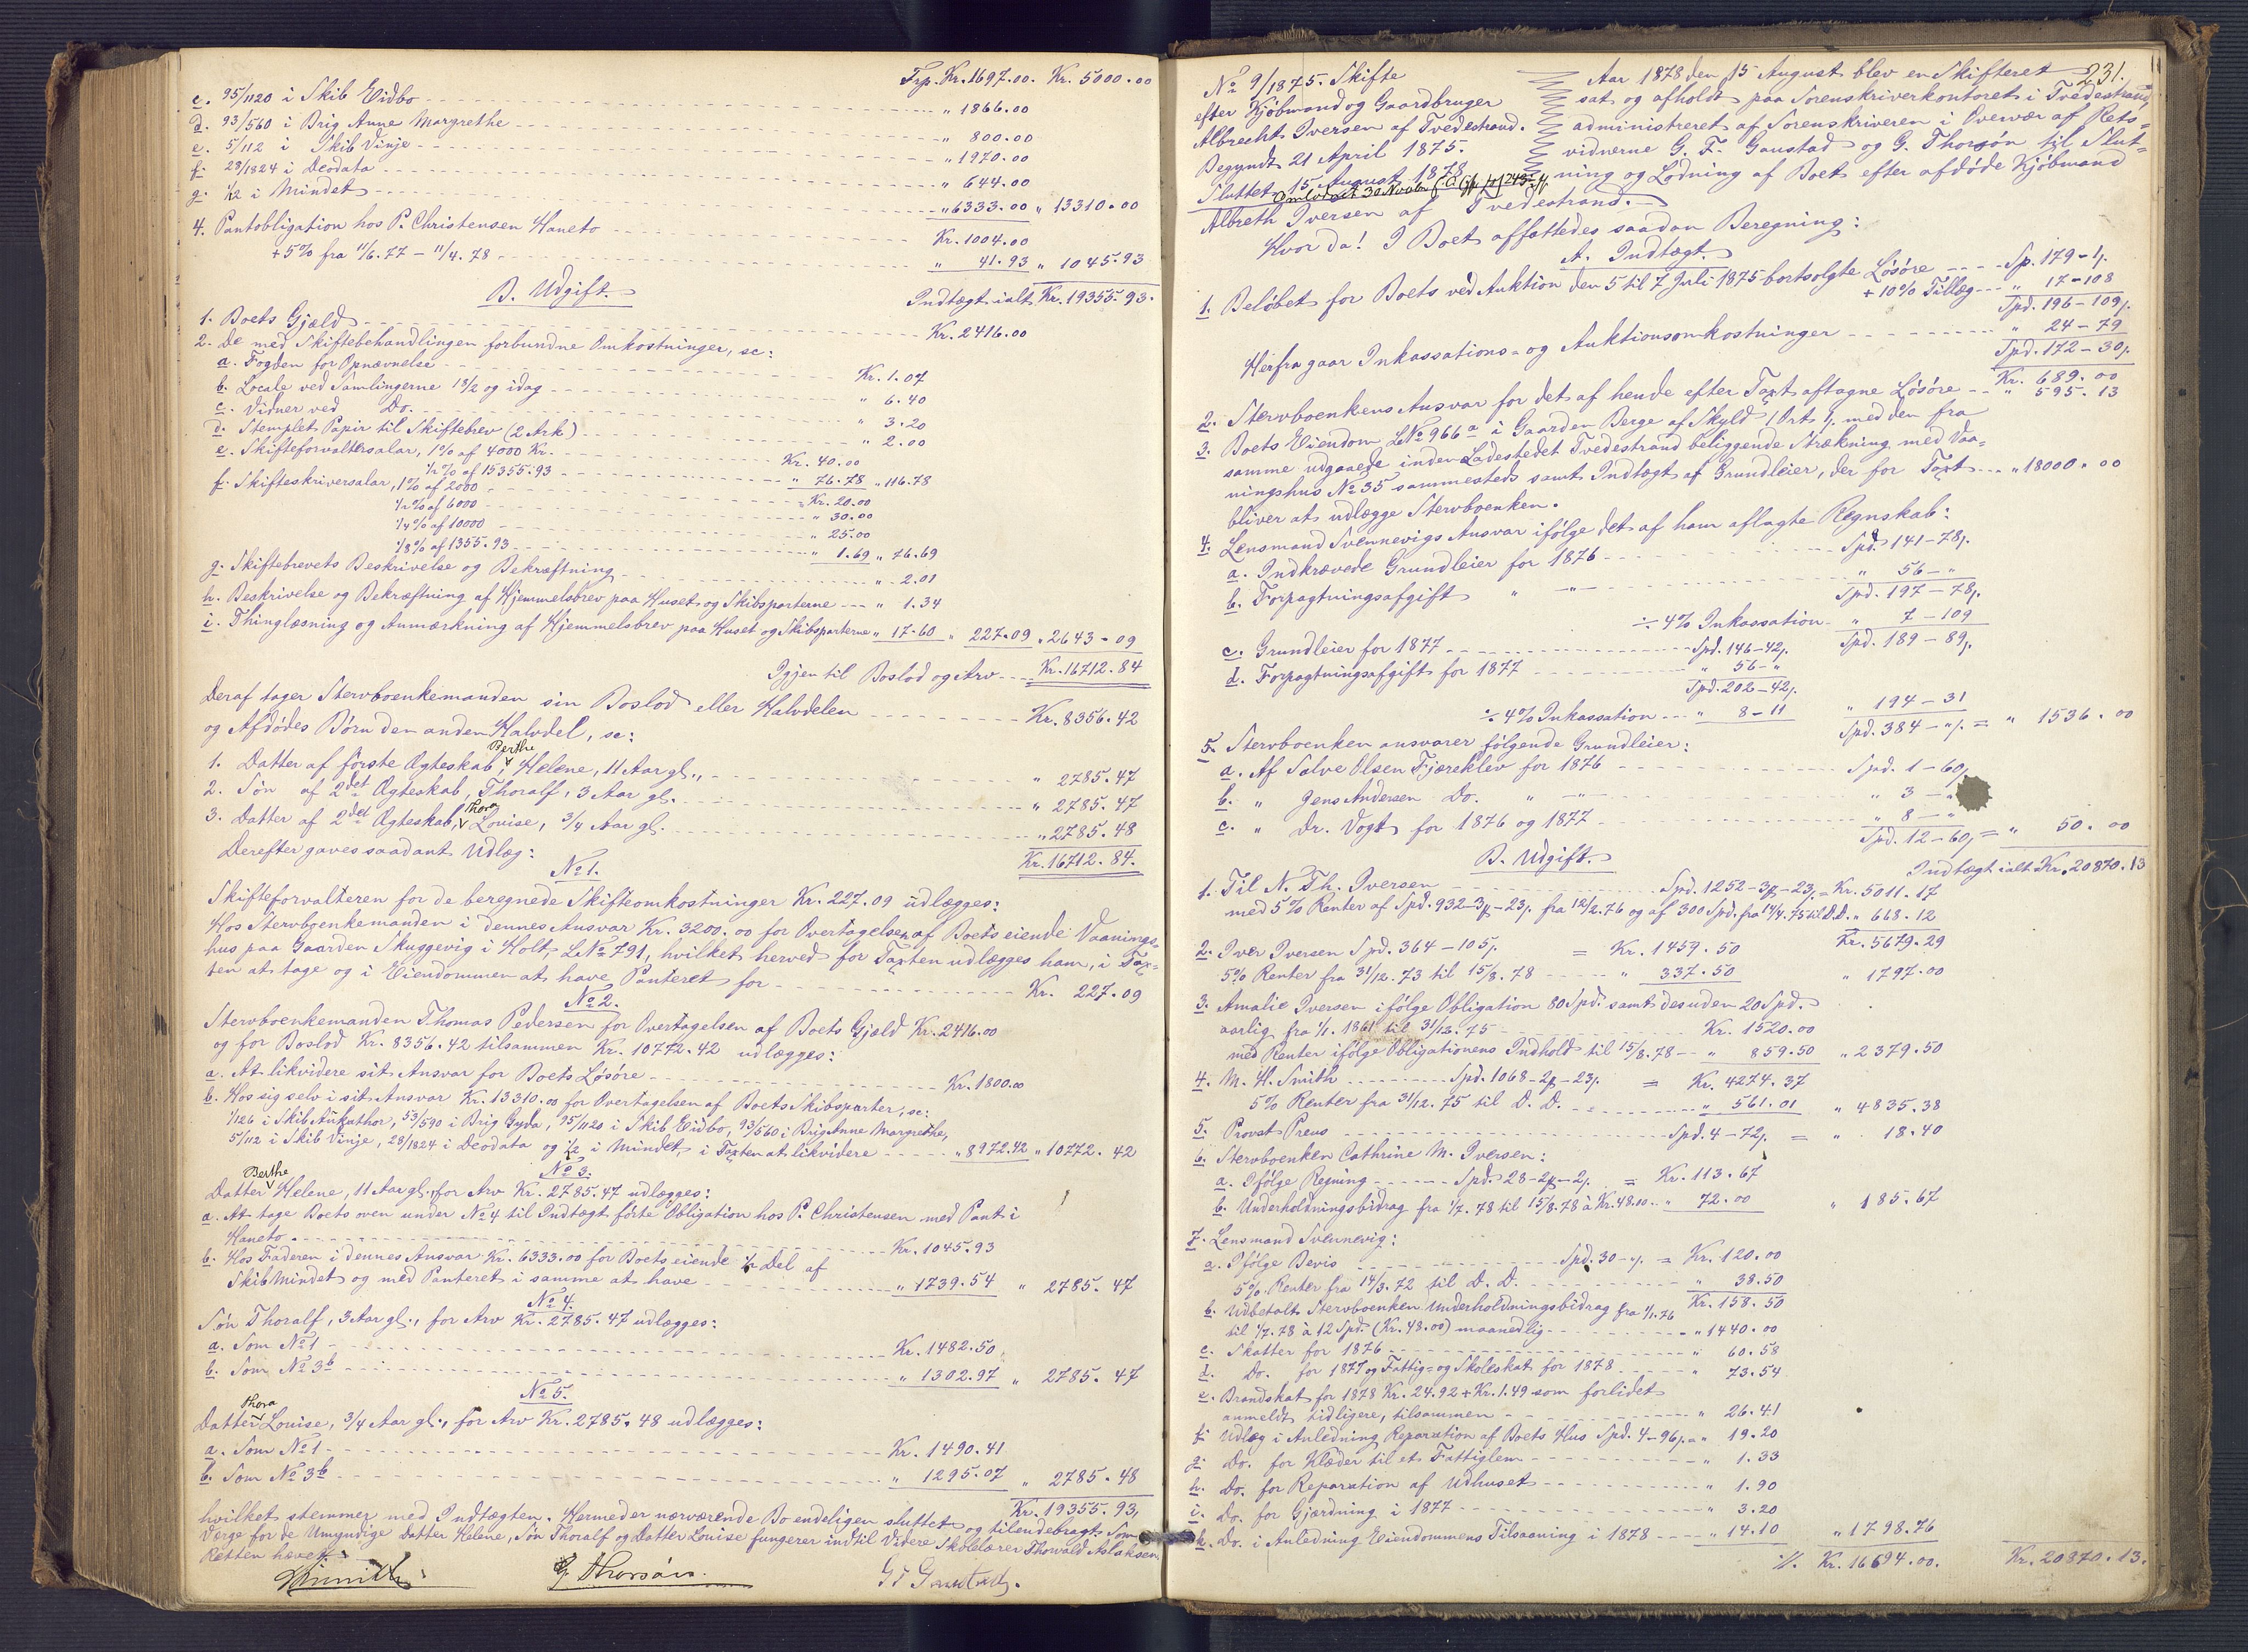 Trp. Kr. 1697.00. Kr. 5000.00
c. 95/1120 i Skib Eidbo " 1866.00
d. 93/560 i Brig Anne Margrethe " 800.00
e. 5/112 i Skib Vinje " 1970.00
f. 28/1824 i Deodata " 644.00
g. 1/2 i Mindet " 6333.00 " 13310.00
4. Pantobligation hos P. Christensen Haneto Kr. 1004.00
+ 5% fra 11/6.77 - 11/4.78 " 41.93 " 1045.93
Indtægt ialt Kr. 19355.93.
B. Udgift.
1. Boets Gjæld Kr. 2416.00
2. De med Skiftebehandlingen forbundne Omkostninger, sc:
a. Fogden for Opnævnelse Kr. 1.07
b. Locale ved Samlingerne 18/2 og idag " 6.40
c. Vidner ved Do. " 3.20
d. Stemplet Papir til Skiftebrev (2 Ark) " 2.00
e. Skifteforvaltersalar, 1% af 4000 Kr. Kr. 40.00
1/2% af 15355.93 " 76.78 " 116.78
f. Skifteskriversalar, 1% af 2000 Kr. 20.00
1/2% af 6000 " 30.00
1/4% af 10000 " 25.00
1/8% af 1355.93 " 1.69 " 76.69
g. Skiftebrevets Beskrivelse og Bekræftning " 2.01
h. Beskrivelse og Bekræftning af Hjemmelsbrev paa Huset og Skibsparterne " 1.34
i. Thinglæsning og Anmærkning af Hjemmelsbrev paa Huset og Skibsparterne " 17.60 " 227.09 " 2643.09
Igjen til Boslod og Arv Kr. 16712.84
Deraf tager Stervboenkemanden sin Boslod eller Halvdelen Kr. 8356.42
og Afdødes Børn den anden Halvdel, sc:
1. Datter af første Ægteskab, Berthe Helene, 11 Aar gl., " 2785.47
2. Søn af 2det Ægteskab, Thoralf, 3 Aar gl. " 2785.47
3. Datter af 2det Ægteskab, Thora Louise, 3/4 Aar gl. " 2785.48
Kr. 16712.84.
Derefter gaves saadant Udlæg:
No 1.
Skifteforvalteren for de beregnede Skifteomkostninger Kr. 227.09 udlægges:
Hos Stervboenkemanden i dennes Ansvar Kr. 3200.00 for Overtagelsen af Boets eiende Vaanings-
hus paa Gaarden Skuggevig i Holt, LNo 791, hvilket herved for Taxten udlægges ham, i Tax-
ten at tage og i Eiendommen at have Panteret for Kr. 227.09
No 2.
Stervboenkemanden Thomas Pedersen for Overtagelsen af Boets Gjæld Kr. 2416.00
og for Boslod Kr. 8356.42 tilsammen Kr. 10772.42 udlægges:
a. At likvidere sit Ansvar for Boets Løsøre Kr. 1800.00
b. Hos sig selv i sit Ansvar Kr. 13310.00 for Overtagelsen af Boets Skibsparter, sc:
1/126 i Skib Aukathor, 53/590 i Brig Gyda, 95/1120 i Skib Eidbo, 93/560 i Brig Anne Margrethe,
5/112 i Skib Vinje, 28/1824 i Deodata og 1/2 i Mindet, i Taxten at likvidere " 8972.42 " 10772.42
No 3.
Datter Berthe Helene, 11 Aar gl., for Arv Kr. 2785.47 udlægges:
a. At tage Boets oven under No 4 til Indtægt førte Obligation hos P. Christensen med Pant i
Haneto Kr. 1045.93
b. Hos Faderen i dennes Ansvar Kr. 6333.00 for Boets eiende 1/2 Del af
Skib Mindet og med Panteret i samme at have " 1739.54 " 2785.47
No 4.
Søn Thoralf, 3 Aar gl., for Arv Kr. 2785.47 udlægges:
a. Som No 1 Kr. 1482.50
b. Som No 3b " 1302.97 " 2785.47
No 5.
Datter Thora Louise, 3/4 Aar gl., for Arv Kr. 2785.48 udlægges:
a. Som No 1 Kr. 1490.41
b. Som No 3b " 1295.07 " 2785.48
Kr. 19355.93,
hvilket stemmer med Indtægten. Hermed er nærværende Bo endeligen sluttet og tilendebragt. Som
Verge for de Umyndige Datter Helene, Søn Thoralf og Datter Louise fungerer indtil Videre Skolelærer Thorvald Aslaksen.
Retten hævet.
G. Thorsøn. G F Gaustad.
231.
No 9/1875. Skifte
efter Kjøbmand og Gaardbruger
Albrecht Iversen af Tvedestrand.
Begyndt 21 April 1875.
Sluttet 15 August 1878
Aar 1878 den 15 August blev en Skifteret
sat og afholdt paa Sorenskriverkontoret i Tvedestrand,
administreret af Sorenskriveren i Overvær af Rets-
vidnerne G. F. Gaustad og G. Thorsøn til Slut-
ning og Lodning af Boet efter afdøde Kjøbmand
Albreth Iversen af Tvedestrand.
Hvor da! I Boet affattedes saadan Beregning:
A. Indtægt.
1. Beløbet for Boets ved Auktion den 5 til 7 Juli 1875 bortsolgte Løsøre Sp. 179-1/.
+ 10% Tillæg " 17-108
Spd. 196-109/.
Herfra gaar Inkassations- og Auktionsomkostninger " 24-79
Spd. 172-30/.
Kr. 689.00
2. Stervboenkens Ansvar for det af hende efter Taxt aftagne Løsøre " 595.13
3. Boets Eiendom LNo 966a i Gaarden Berge af Skyld 1 Ort 1/. med den fra
samme udgaaede inden Ladestedet Tvedestrand beliggende Strækning med Vaa-
ningshus No 35 sammesteds samt Indtægt af Grundleier, der for Taxt " 18000.00
bliver at udlægge Stervboenken.
4. Lensmand Svennevigs Ansvar ifølge det af ham aflagte Regnskab:
a. Indkrævede Grundleier for 1876 Spd. 141-78/.
b. Forpagtningsafgift " " 56-"
Spd. 197-78/.
÷ 4% Inkassation " 7-109
Spd. 189-89/.
c. Grundleier for 1877 Spd. 146-42/.
d. Forpagtningsafgift for 1877 " 56-"
Spd. 202-42/.
÷ 4% Inkassation " 8-11 " 194-31
Spd. 384-"/. = " 1536.00
5. Stervboenken ansvarer følgende Grundleier:
a. Af Salve Olsen Fjæreklev for 1876 Spd. 1-60/.
b. " Jens Andersen Do. " " 3-"
c. " Dr. Vogt for 1876 og 1877 " 8-"
Spd. 12-60/. = " 50.00
Indtægt ialt Kr. 20870.13
B. Udgift.
1. Til N. Th. Iversen Spd. 1252-3/-23/. = Kr. 5011.17
med 5% Renter af Spd. 932-3/-23/. fra 12/2.76 og af 300 Spd. fra 14/4.75 til D.D. " 668.12
Kr. 5679.29
2. Iver Iversen Spd. 364-105/. = Kr. 1459.50
5% Renter fra 31/12.73 til 15/8.78 " 337.50 " 1797.00
3. Amalie Iversen ifølge Obligation 80 Spd. samt desuden 20 Spd.
aarlig fra 1/1.1861 til 31/12.75 Kr. 1520.00
med Renter ifølge Obligationens Indhold til 15/8.78 " 859.50 " 2379.50
4. M. H. Smith Spd. 1068-2/-23/. = Kr. 4274.37
5% Renter fra 31/12.75 til D.D. " 561.01 " 4835.38
5. Provst Preus Spd. 4-72/. = " 18.40
6. Stervboenken Cathrine M. Iversen:
a. Ifølge Regning Spd. 28-2/-2/. = Kr. 113.67
b. Underholdningsbidrag fra 1/7.78 til 15/8.78 à Kr. 48.00 " 72.00 " 185.67
7. Lensmand Svennevig:
a. Ifølge Bevis Spd. 30-"/. = Kr. 120.00
5% Renter fra 14/3.72 til D.D. " 38.50
Kr. 158.50
b. Udbetalt Stervboenken Underholdningsbidrag fra 1/1.76
til 1/7.78 à 12 Spd. (Kr. 48.00) maanedlig " 1440.00
c. Skatter for 1876 " 60.58
d. Do. for 1877 og Fattig- og Skoleskat for 1878 " 73.54
e. Brandskat for 1878 Kr. 24.92 + Kr. 1.49 som forlidet
anmeldt tidligere, tilsammen " 26.41
f. Udlæg i Anledning Reparation af Boets Hus Spd. 4-96/. = " 19.20
g. Do. for Klæder til et Fattiglem " 1.33
h. Do. for Reparation af Udhuset " 1.90
i. Do. for Gjærdning i 1877 " 3.20
k. Do. i Anledning Eiendommens Tilsaaning i 1878 " 14.10 " 1798.76
Kr. 16694.00. Kr. 20870.13.